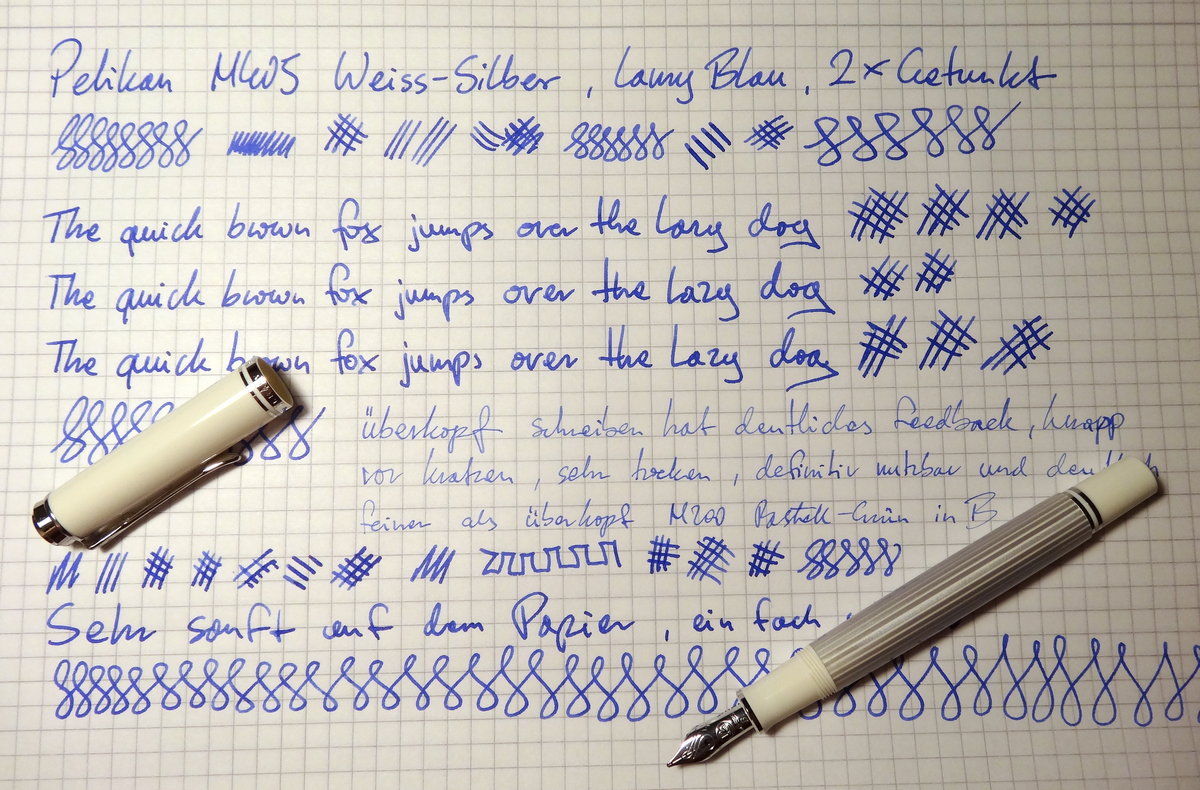 Pelikan M405 Weiss-Silber, Lamy Blau, 2x Getunkt
The quick brown fox jumps over the lazy dog
The quick brown fox jumps over the lazy dog
The quick brown fox jumps over the lazy dog
überkopf schreiben hat deutliches Feedback, knapp
vor kratzen, sehr trocken, definitiv nutzbar und
feiner als überkopf M200 Pastell-Grün in B
Sehr sanft auf dem Papier, einfach